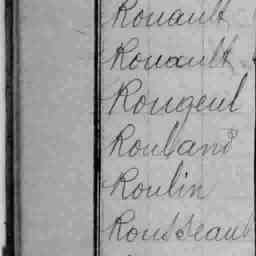 Rouault
Rouault
Rougeul
Rouland
Roulin
Rousseau